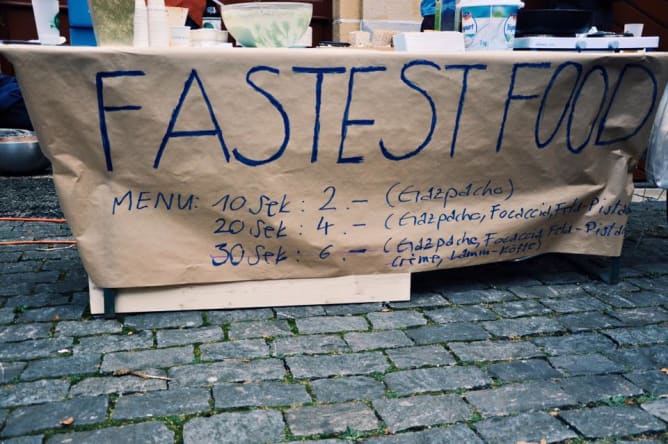 FASTEST FOOD
MENU: 10 Sek: 2.- (Gazpacho)
20 Sek: 4.- (Gazpacho, Focaccia, Feta-
30 Sek: 6.- (Gazpacho, Focaccia, Feta-
Crème, Lamm-Köfte)